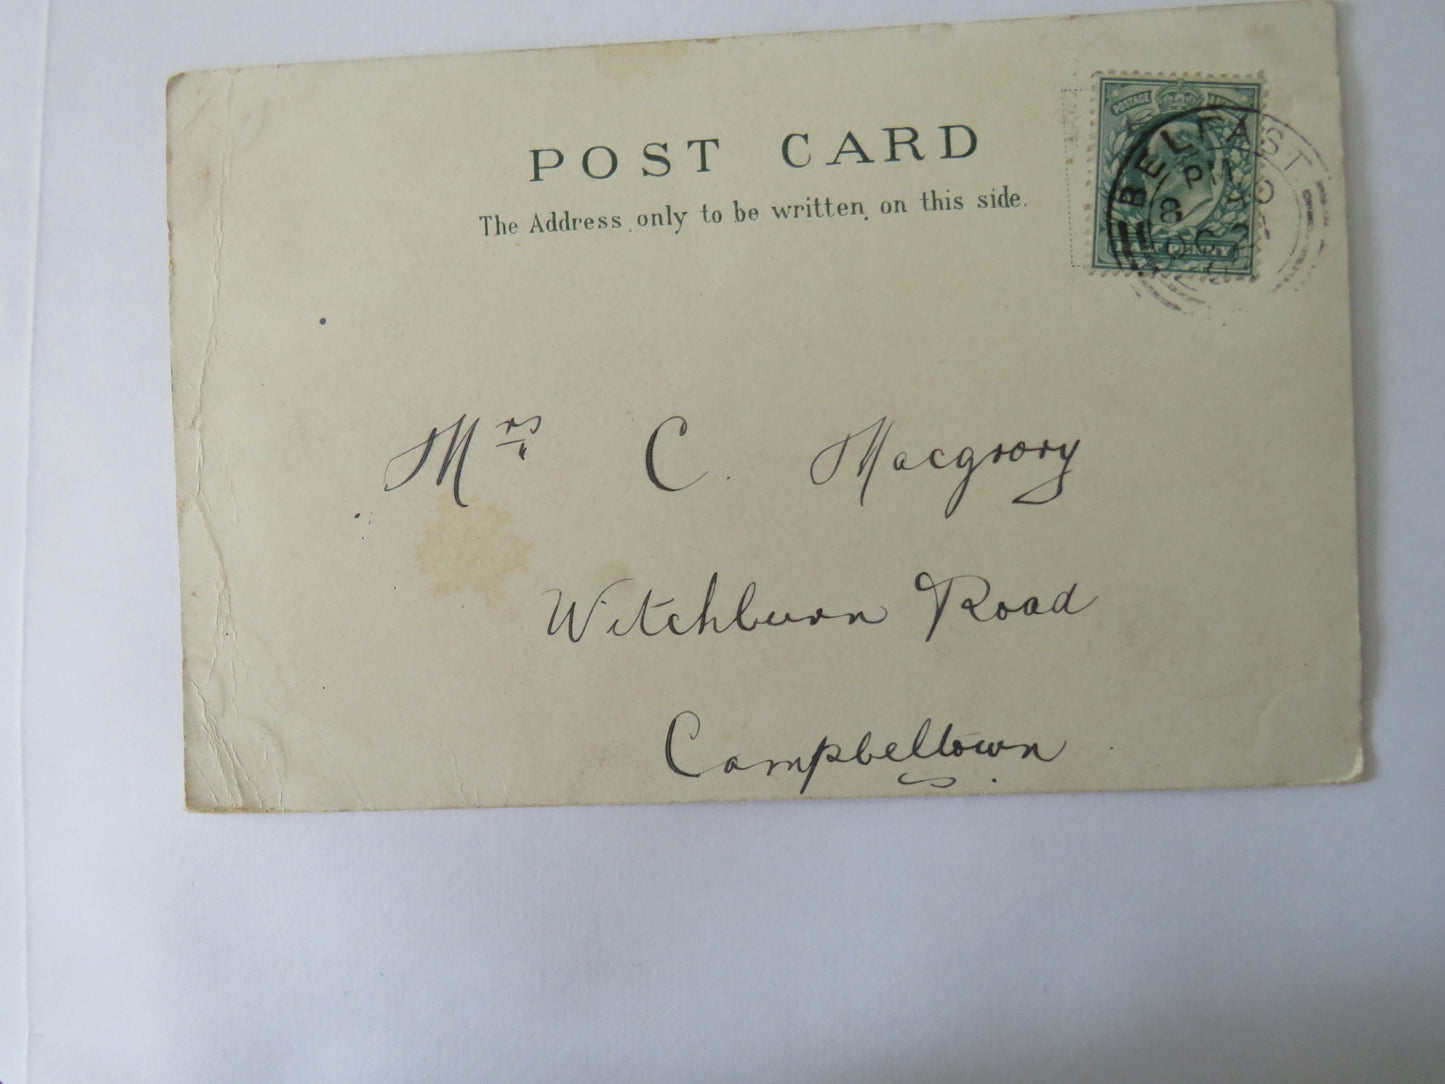 POST CARD
The Address only to be written on this side.
POSTAGE
PENNY
BELFAST
PM
8
OC 2
Mrs C. Macgrory
Witchburn Road
Campbeltown